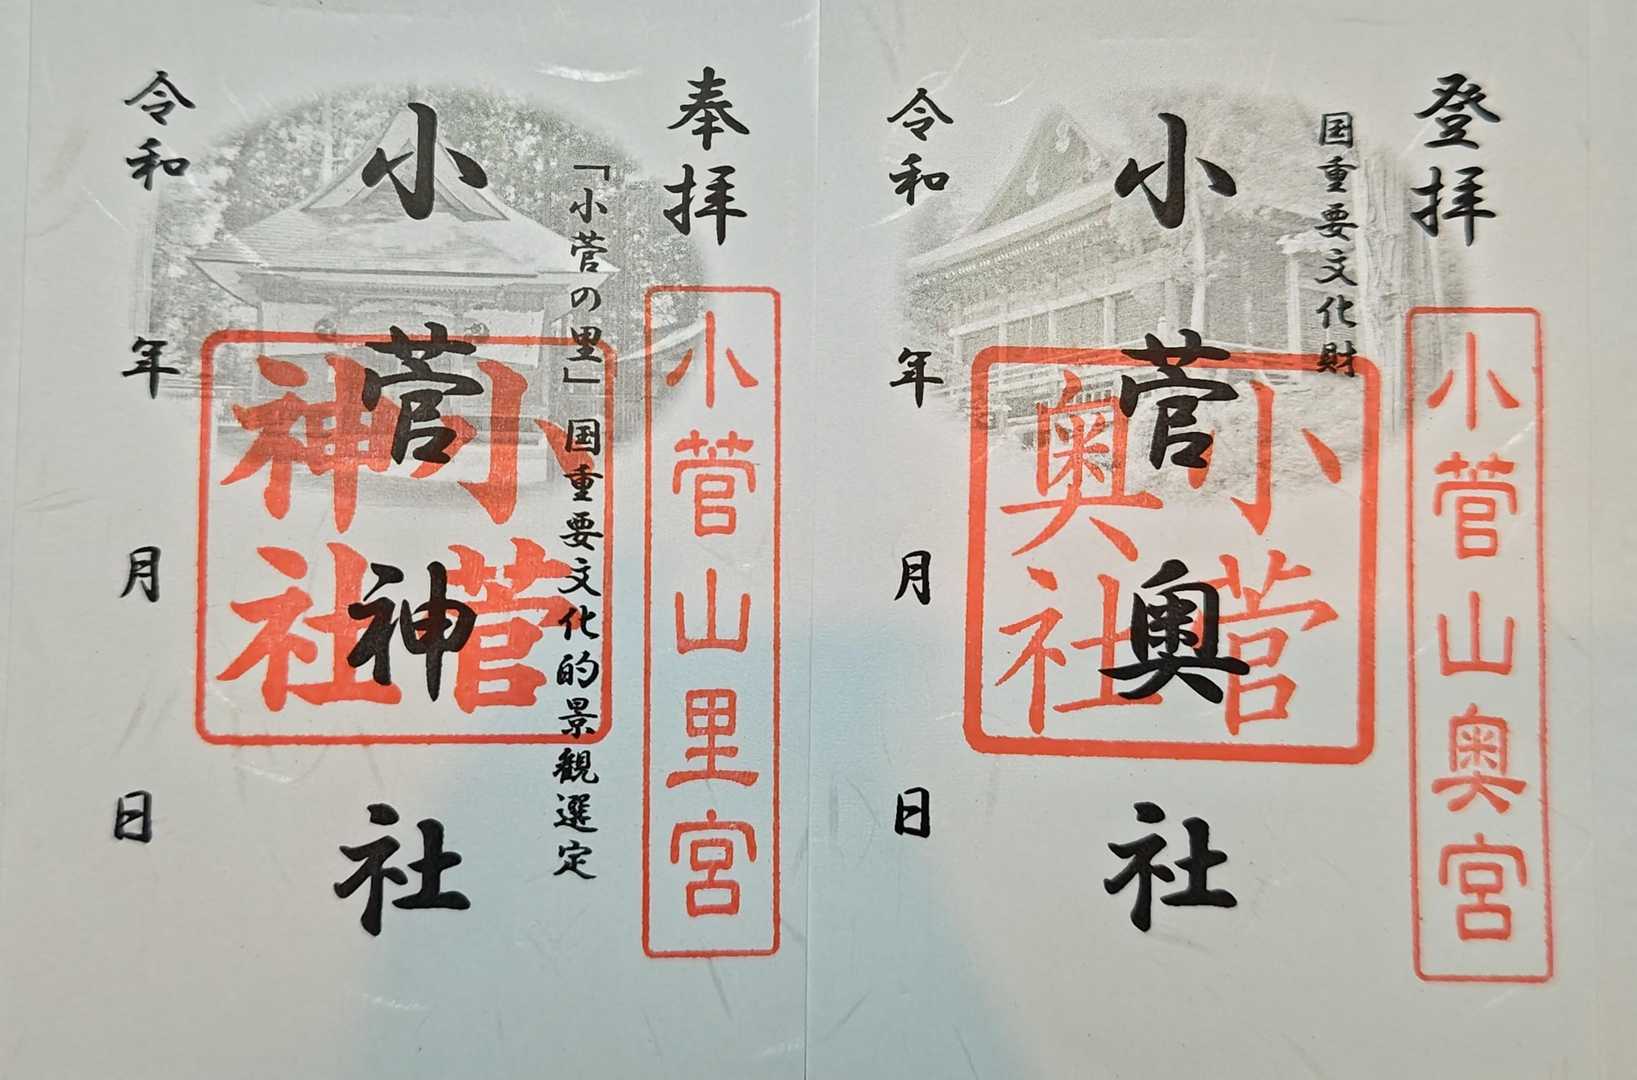 登拝
小菅山奥宮
国重要文化財
小菅奥社
小菅
奥社
令和 年 月 日
奉拝
小菅山里宮
「小菅の里」国重要文化的景観選定
小菅神社
小菅
神社
令和 年 月 日